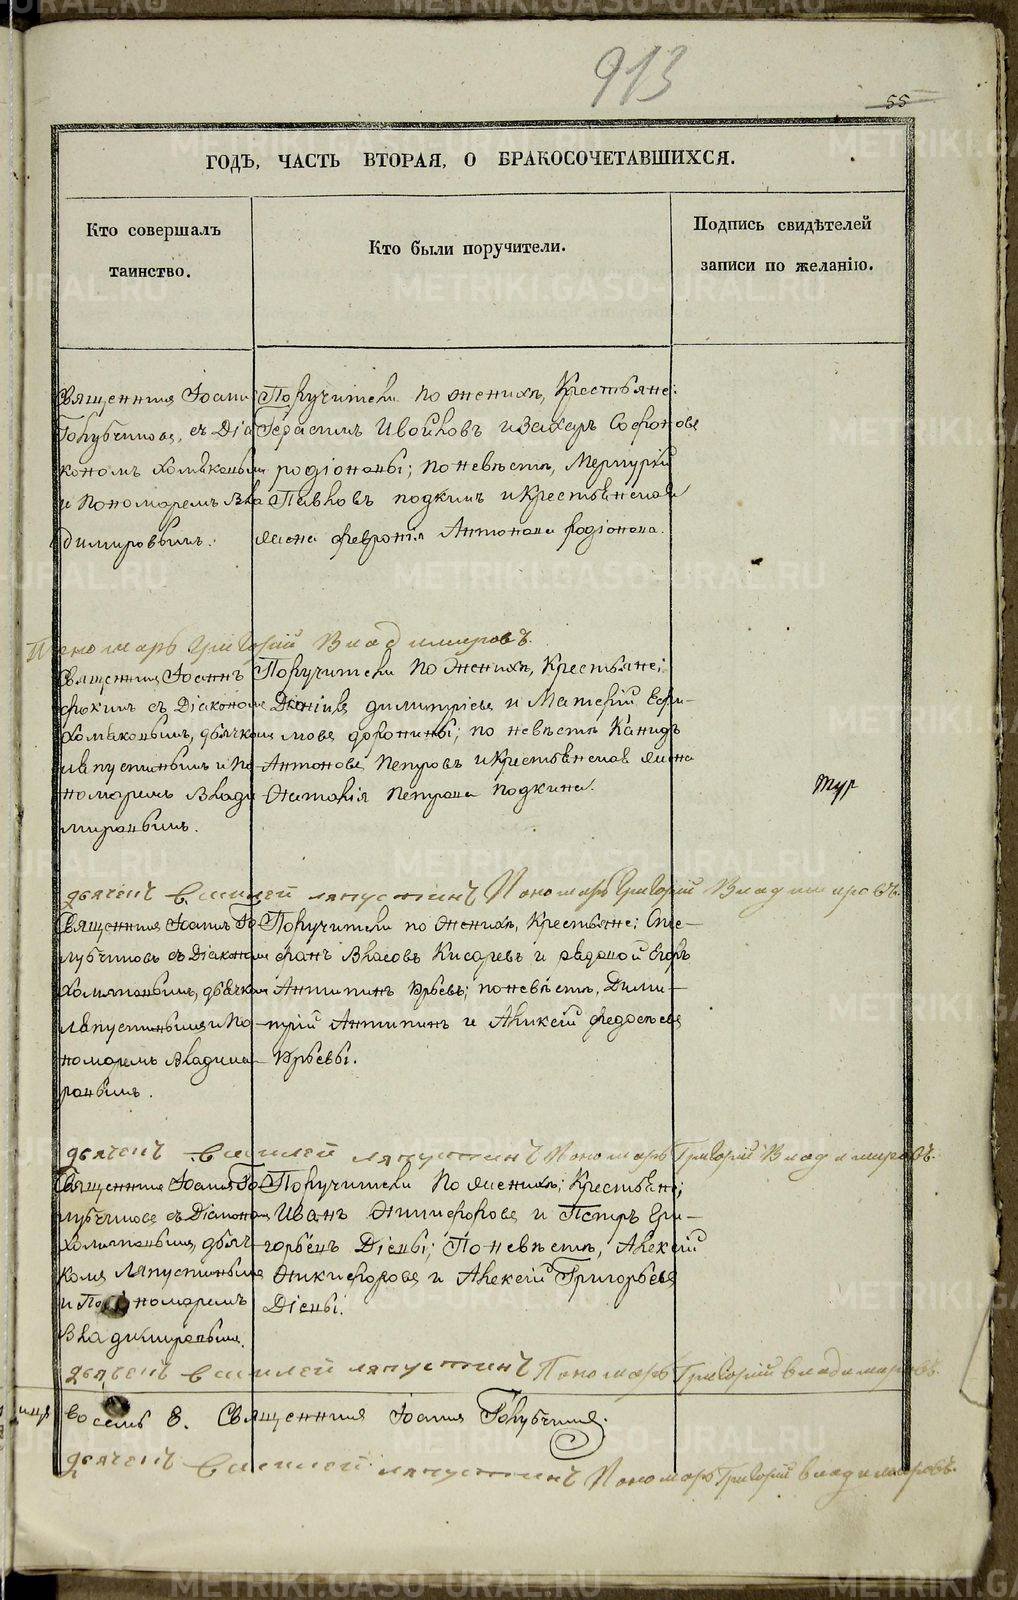 913
55
ГОДЪ, ЧАСТЬ ВТОРАЯ, О БРАКОСОЧЕТАВШИХСЯ.
Кто совершалъ
таинство.
Кто были поручители.
Подпись свидѣтелей
записи по желанію.
Священникъ Іоаннъ
Голубчиковъ, съ Діа
кономъ Хомяковымъ
и Пономаремъ Вла
димировымъ.
Поручители по женихѣ, Крестьяне:
Герасимъ Ивойловъ и Захаръ Софоновъ
родіоновы; по невѣстѣ, Меркурій
Павловъ подкинъ и Крестьянская
жена Февронія Антонова Родіонова.
Пономарь Григорій Владимировъ.
Священникъ Іоаннъ
съ Діакономъ
Хомяковымъ, дьячкомъ
Ляпустинымъ и По
номаремъ Влади
мировымъ.
Поручители по женихѣ, Крестьяне;
Діонисій димитріевъ и Матвей Ефи-
мовъ доронины; по невѣстѣ
Антоновъ Петровъ и Крестьянская жена
Наталія Петрова подкина.
дьячекъ Василей Ляпустинъ Пономарь Григорій Владимировъ.
Священникъ Іоаннъ Го
лубчиковъ съ Діакономъ
Хомяковымъ, дьячкомъ
Ляпустинымъ и По
номаремъ Владими
ровымъ.
Поручители по женихѣ, Крестьяне; Сте-
фанъ Власовъ Кисаревъ и рядовой Егоръ
Антипинъ Юрьевъ; по невѣстѣ, Дими-
трій Антипинъ и Алексій Федосѣевъ
Юрьевы.
дьячекъ Василей Ляпустинъ Пономарь Григорій Владимировъ.
Священникъ Іоаннъ Го
лубчиковъ съ Діакономъ
Хомяковымъ, дьяч-
комъ Ляпустинымъ
и Пономаремъ
Владимировымъ.
Поручители по женихѣ; Крестьяне;
Иванъ Никифоровъ и Петръ Гри-
горьевъ Діевы; По невѣстѣ, Алексій
Никифоровъ и Алексій Григорьевъ
Діевы.
дьячекъ Василей Ляпустинъ Пономарь Григорій Владимировъ.
восемь 8. Священникъ Іоаннъ Голубчиковъ.
дьячекъ Василей Ляпустинъ Пономарь Григорій Владимировъ.
METRIKI.GASO-URAL.RU